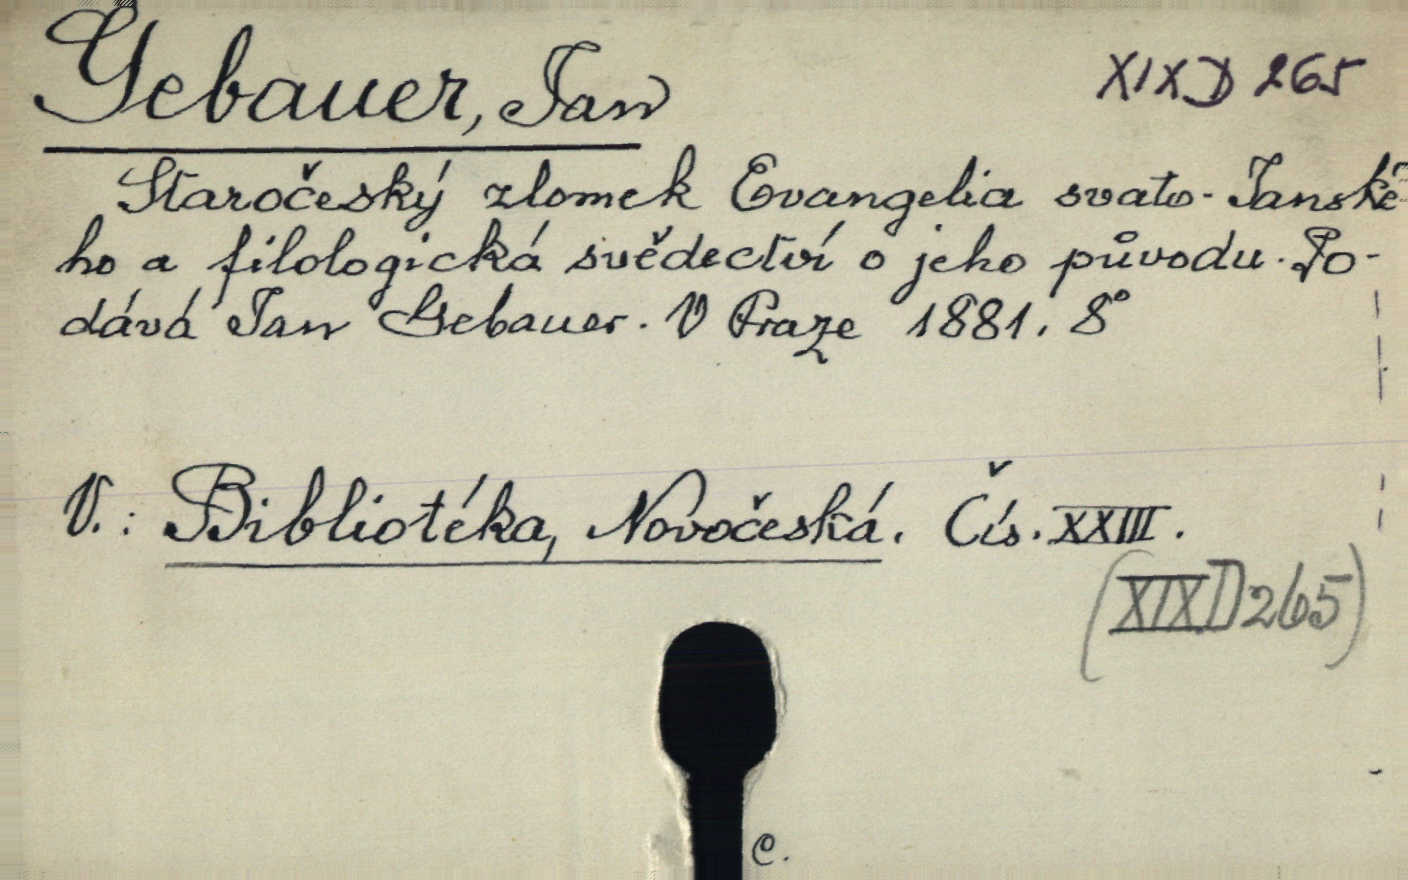 Gebauer, Jan
XIX D 265
Staročeský zlomek Evangelia svato-Janské-
ho a filologická svědectví o jeho původu. Po-
dává Jan Gebauer. V Praze 1881. 8°
V.: Bibliotéka, Novočeská. Čís. XXIII.
(XIX D 265)
C.